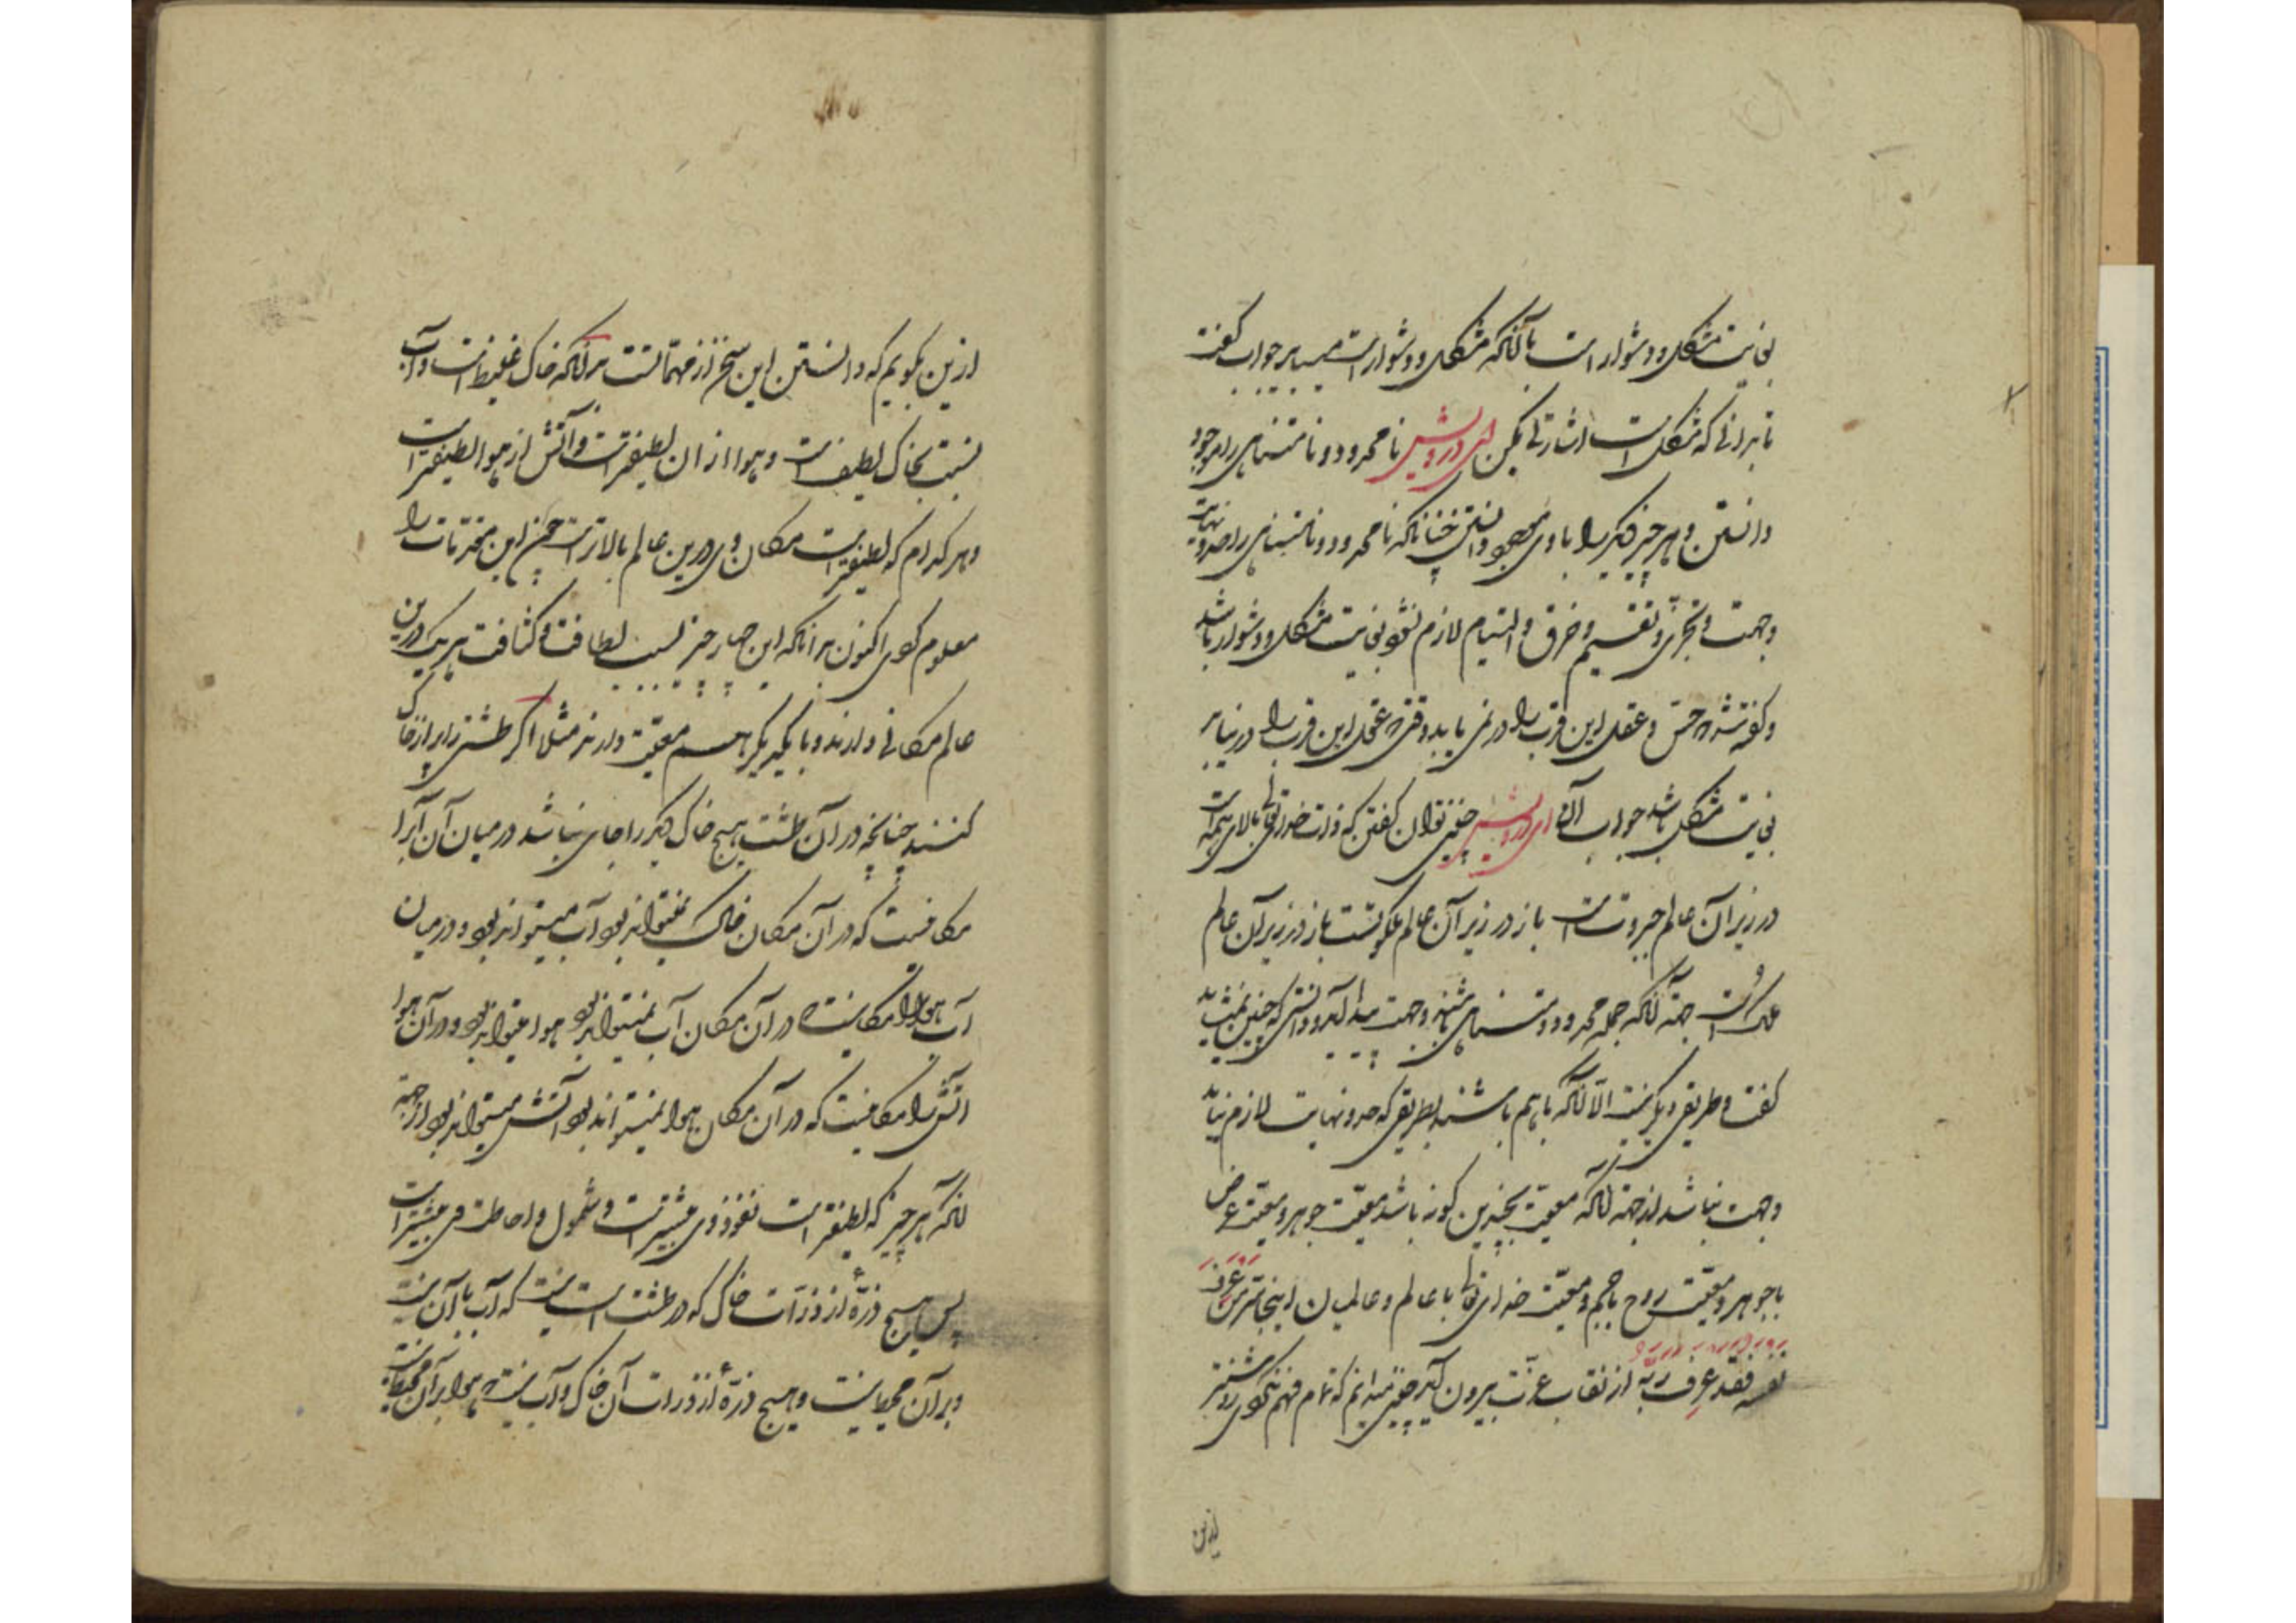 بغایت مشکل و دشوار است با آنکه مشکل و دشوار است میباید جواب گفت
تا بدانی که مشکل است اشارتی بکنم ای درویش نامحدود و نامتناهی را موجود
دانستن و هر چیز دیگر را با وی موجود دانستن چنانکه نامحدود و نامتناهی را حد و نهایت
و جهت و تجزی و تقسیم و خرق و التیام لازم نشود بغایت مشکل و دشوار باشد
و گفته شد که حس و عقل این قرب را در نمی یابد وقتی که عقل این قرب را در نیابد
بغایت مشکل باشد جواب آن ای درویش چنین نتوان گفتن که ذات خدای تعالی بالای همه است
در زیر آن عالم جبروتست باز در زیر آن عالم ملکوتست باز در زیر آن عالم
ملک است جهة آنکه جمله محدود و متناهی باشند و جهت پیدا آید و دانستی که چنین نمیشاید
گفت و طریقی دیگر نیست الا آنکه باهم باشند بطریقی که حد و نهایت لازم نیاید
و جهت نباشد از جهة آنکه معیت بچندین گونه باشد معیت جوهر و معیت عرض
با جوهر و معیت روح با جسم و معیت خدای تعالی با عالم و عالمیان اینجا سر من عرف
نفسه فقد عرف ربه از نقاب عزت بیرون آید چنین میدانم که تمام فهم نکردی روشنتر
ازین
ازین بگویم که دانستن این سخن از مهماتست بدانکه خاک غلیظ است و آب
نسبت بخاک لطیف است و هوا از آن لطیفتر است و آتش از هوا لطیفتر است
و هر کدام که لطیفتر است مکان وی درین عالم بالاتر است چون این مقدمات را
معلوم کردی اکنون بدانکه این چهار چیز بسبب لطافت و کثافت هر یک درین
عالم مکانی دارند و با یکدیگر هم معیت دارند مثلا اگر طشتی را پر از خاک
کنند چنانچه در آن طشت هیچ خاک دیگر را جای نباشد در میان آن آب را
مکانیست که در آن مکان خاک نمیتواند بود آب میتواند بود و در میان
آب هوا را مکانیست که در آن مکان آب نمیتواند بود هوا میتواند بود و در آن هوا
آتش را مکانیست که در آن مکان هوا نمیتواند بود آتش میتواند بود از جهة
آنکه هر چیز که لطیفتر است نفوذ وی بیشتر است و شمول و احاطت وی بیشتر است
پس هیچ ذره از ذرات خاک که در طشت است نیست که آب با آن نیست
و بر آن محیط نیست و هیچ ذره از ذرات آن خاک و آب نیست که هوا بر آن محیط نیست